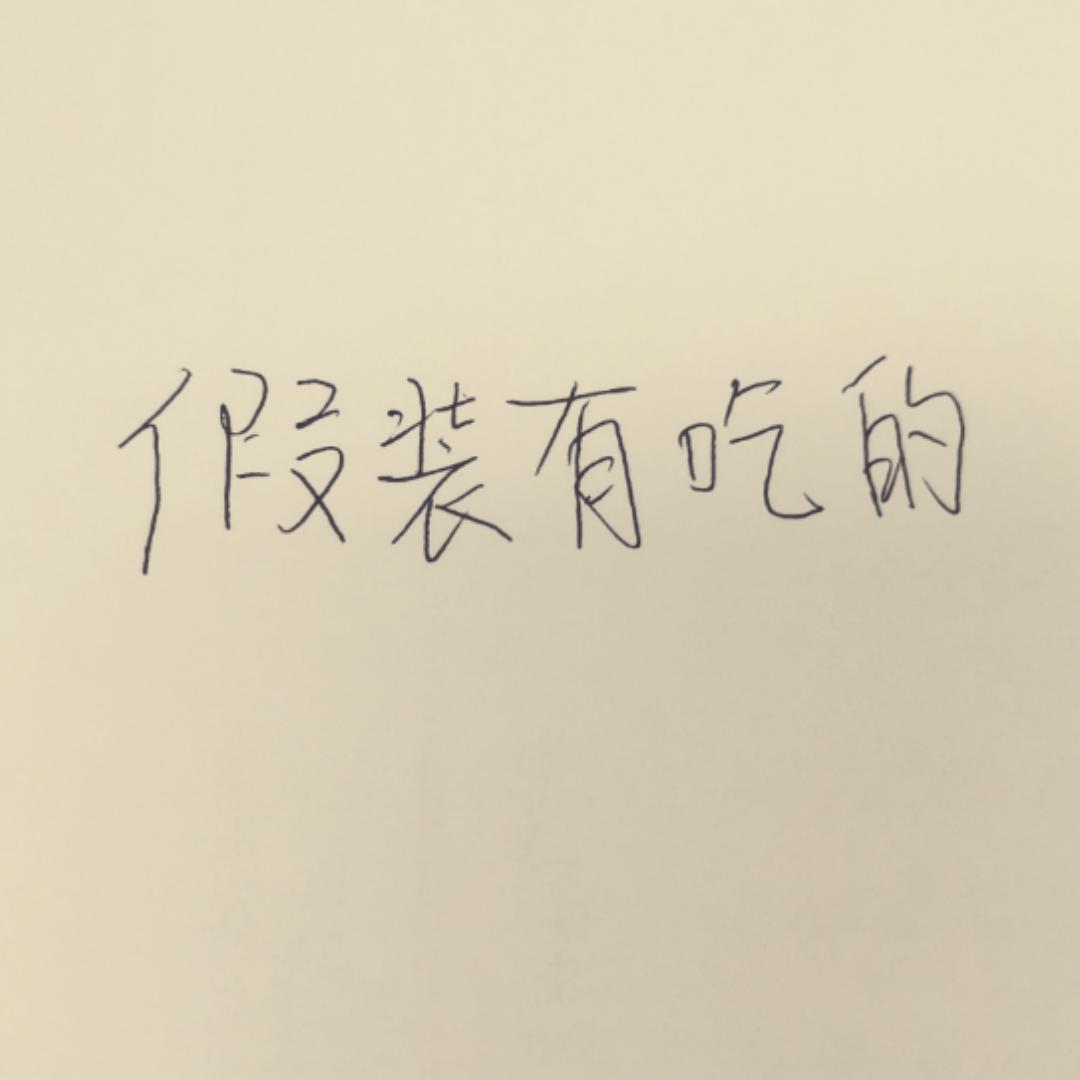 假装有吃的